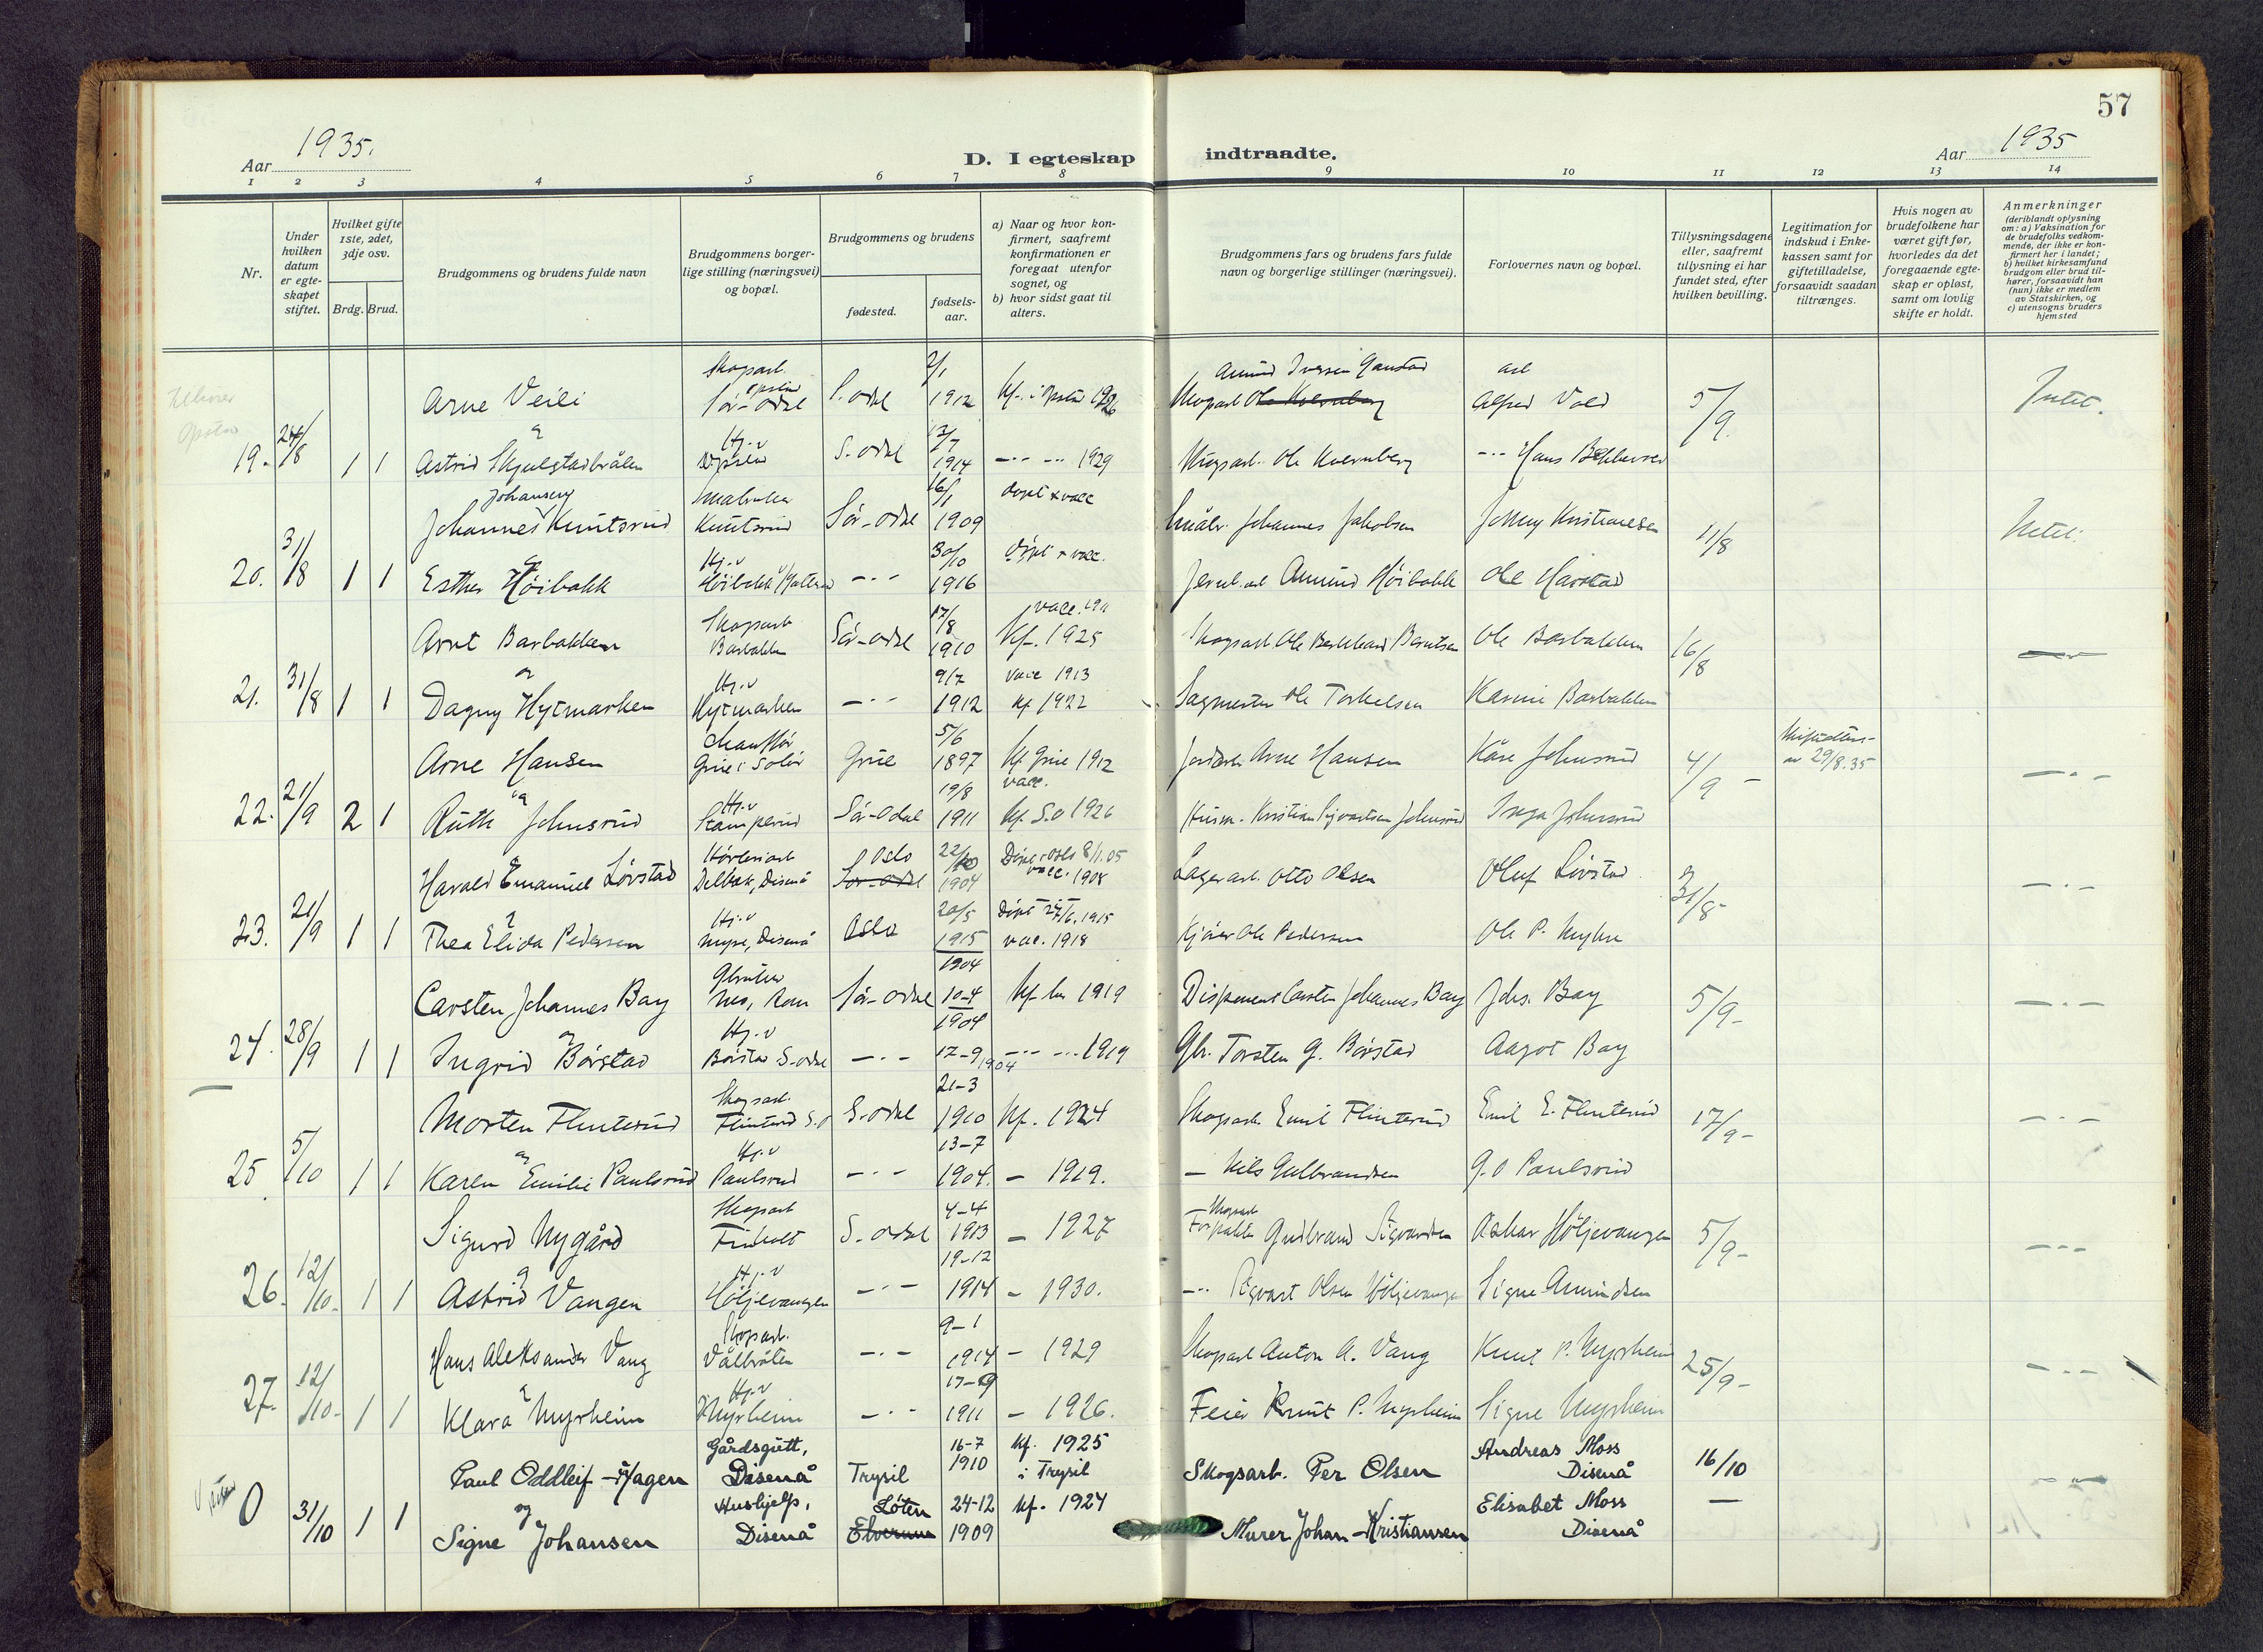 57
Aar 1935.
D. I egteskap indtraadte.
Aar 1935
1 2 3 4 5 6 7 8 9 10 11 12 13 14
Nr.
Under hvilken datum er egteskapet stiftet.
Hvilket gifte 1ste, 2det, 3dje osv.
Brdg. Brud.
Brudgommens og brudens fulde navn
Brudgommens borgerlige stilling (næringsvei) og bopæl.
Brudgommens og brudens
fødested.
fødselsaar.
a) Naar og hvor konfirmert, saafremt konfirmationen er foregaat utenfor sognet, og
b) hvor sidst gaat til alters.
Brudgommens fars og brudens fars fulde navn og borgerlige stillinger (næringsvei).
Forlovernes navn og bopæl.
Tillysningsdagene eller, saafremt tillysning ei har fundet sted, efter hvilken bevilling.
Legitimation for indskud i Enkekassen samt for giftetilladelse, forsaavidt saadan tiltrænges.
Hvis nogen av brudefolkene har været gift før, hvorledes da det foregaaende egteskap er opløst, samt om lovlig skifte er holdt.
Anmerkninger (deriblandt oplysning om: a) Vaksination for de brudefolks vedkommende, der ikke er konfirmert her i landet; b) hvilket kirkesamfund brudgom eller brud tilhører, forsaavidt han (hun) ikke er medlem av Statskirken, og c) utensogns bruders hjemsted
Skogarb. 2/1 Amund Iversen
Arne Veili Sør-Odal S. Odal 1912 Kf. i Opstad 1926 Skogarb Ole Kvernberg Alfred Vold 5/9. Intet.
19. 24/8 1 1 Astrid Skjulstadbråten Hj.v Opstad S. Odal 12/7 1914 1929 Skogarb. Ole Kvernberg Hans
Johansen 16/1 døpt & vacc
Johannes Knutsrud Knutsrud Sør-Odal 1909 Småbr. Johannes Jakobsen Johnny Kristiansen 11/8 Intet.
20. 31/8 1 1 Esther Høibakk Hj.v Høibakk -.- 30/10 1916 døpt & vacc. Amund Høibakk Ole Harstad
vacc. 1911
Arnt Barbakken Skogarb Barbakken Sør-Odal 17/8 1910 Kf. 1925 Skogarb. Ole Berntsen Ole Barbakken 16/8
21. 31/8 1 1 Dagny Hytmarken Hj.v Hytmarken -.- 9/7 1912 vacc 1913 Kf 1922 Sagmester Ole Torkelsen Karine Barbakken
Arne Hansen Chauffør Grue i Solør Grue 5/6 1897 Kf Grue 1912 Arne Hansen Kåre Johnsrud 4/9 - 29/8.35 -.-
22. 21/9 2 1 Ruth Johnsrud Hj.v Sør-Odal 19/8 1911 vacc. Kf S.O 1926 Kristian Sigvartsen Johnsrud Inga Johnsrud
Harald Emanuel Løvstad Delbæk, Disenå Oslo Sør-Odal 22/10 1904 Døpt i Oslo 8/1.05 vacc. 1908 Lagerarb. Otto Olsen Oluf Løvstad 31/8- -.-
23. 21/9 1 1 Thea Elida Pedersen Hj.v Myre, Disenå Oslo 20/5 1915 vac. 1918 Kjører Ole Pedersen Ole P. Myhre
1904
Carsten Johannes Bay Nes, Rom. Sør-Odal 10-4 Kf. her 1919 Disponent Carsten Johannes Bay Johs. Bay 5/9- -.-
24. 28/9 1 1 Ingrid Børstad Hj.v Børstad S-Odal -.- 1904 17-9 1919 Gbr. Torsten G. Børstad Aagot Bay
Morten Flinterud Skogsarb. Flinterud S.O S-Odal 21-3 1910 Kf. 1924 Skogsarb Emil Flinterud Emil E. Flinterud 17/9- -.-
25. 5/10 1 1 Karen Emilie Paulsrud Hj.v Paulsrud -.- 13-7 1904. - 1919. - Nils Gulbrandsen G.O Paulsrud
Sigurd Nygård Skogarb Finholt S. Odal 4-4 1913 - 1927 Gudbrand Sigvardsen Oskar Höljevangen 5/9- -.-
26. 12/10- 1 1 Astrid Vangen Hj.v Höljevangen -.- 19-12 1914 - 1930. Sigvart Olsen Höljevangen Signe Amundsen
Hans Aleksander Vang Skogarb. Vålbråten -.- 9-1 1914 - 1929 Skogarb Anton A. Vang Knut P. Myrheim 25/9- -.-
27. 12/10- 1 1 Klara Myrheim Hj.v Myrheim -.- 17-9 1911 - 1926. Feier Knut P. Myrheim Signe Myrheim
Paul Oddleif Hagen Gårdsgutt, Disenå Trysil 16-7 1910 Kf. 1925 i Trysil Skogsarb. Per Olsen Andreas Moss Disenå 16/10 -.-
0 31/10 1 1 og Signe Johansen Hushjelp, Disenå Løten Elverum 24-12 1909 Kf. 1924 Murer Johan Kristiansen Elisabet Moss Disenå -